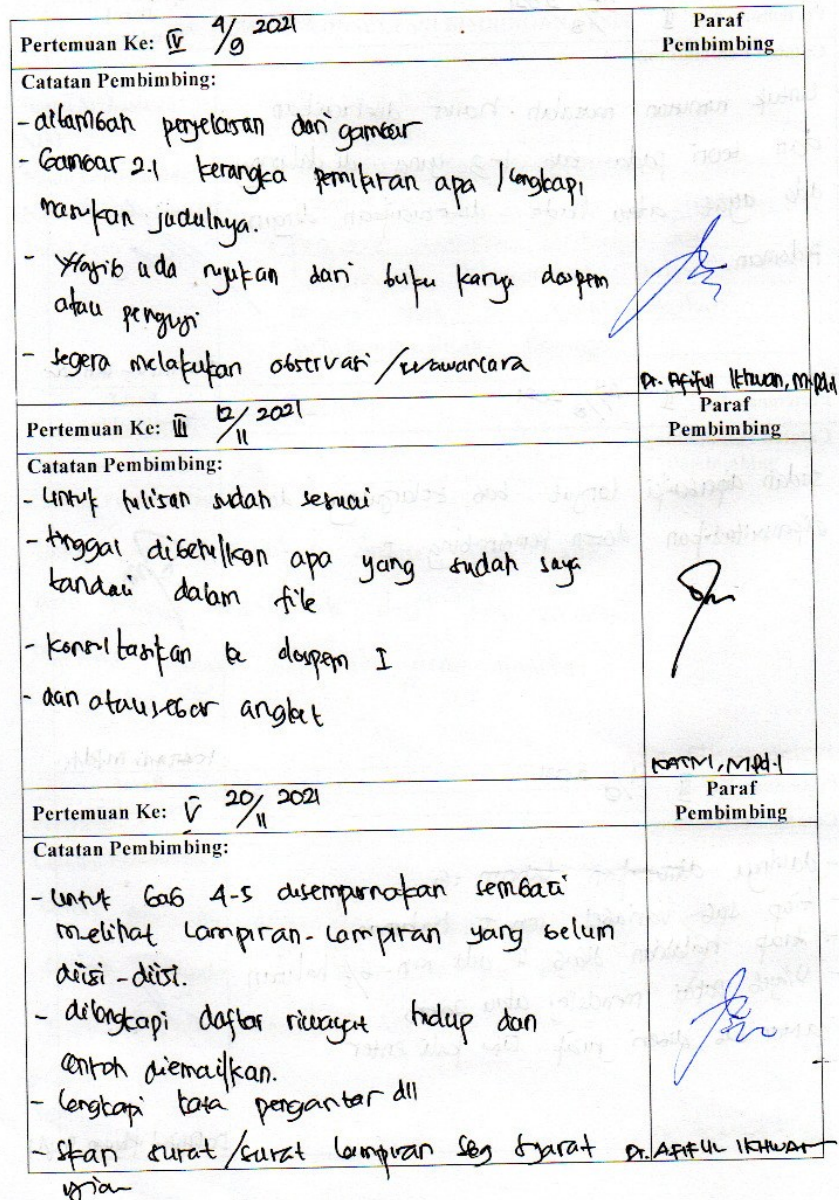 Pertemuan Ke: IV 4/9 2021
Paraf
Pembimbing
Catatan Pembimbing:
- ditambah penjelasan dari gambar
- Gambar 2.1 kerangka pemikiran apa / lengkapi
masukan judulnya.
- Wajib ada rujukan dari buku karya dospem
atau penguji
- segera melakukan observasi / wawancara
Dr. Afiful Ikhwan, M.Pd.I
Pertemuan Ke: III 12/11 2021
Paraf
Pembimbing
Catatan Pembimbing:
- Untuk tulisan sudah sesuai
- tinggal dibetulkan apa yang sudah saya
tandai dalam file
- Konsultasikan ke dospem I
- dan atau sebar angket
KATNI, M.Pd.I
Pertemuan Ke: V 20/11 2021
Paraf
Pembimbing
Catatan Pembimbing:
- Untuk bab 4-5 disempurnakan sembari
melihat lampiran-lampiran yang belum
diisi-diisi.
- dilengkapi daftar riwayat hidup dan
contoh diemailkan.
- Lengkapi kata pengantar dll
- Skan surat/surat lampiran sbg syarat
ujian
Dr. AFIFUL IKHWAN